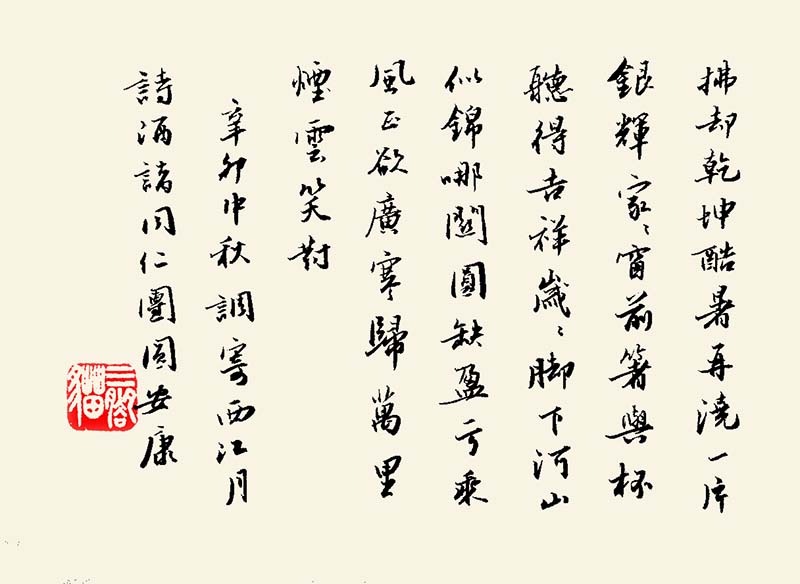 拂却乾坤酷暑再澆一片
銀輝家々窗前箸與杯
聽得吉祥歲々脚下河山
似錦哪關圓缺盈亏乘
風正欲廣寒歸萬里
煙雲笑對
辛卯中秋調寄西江月
詩酒諸同仁團圓安康